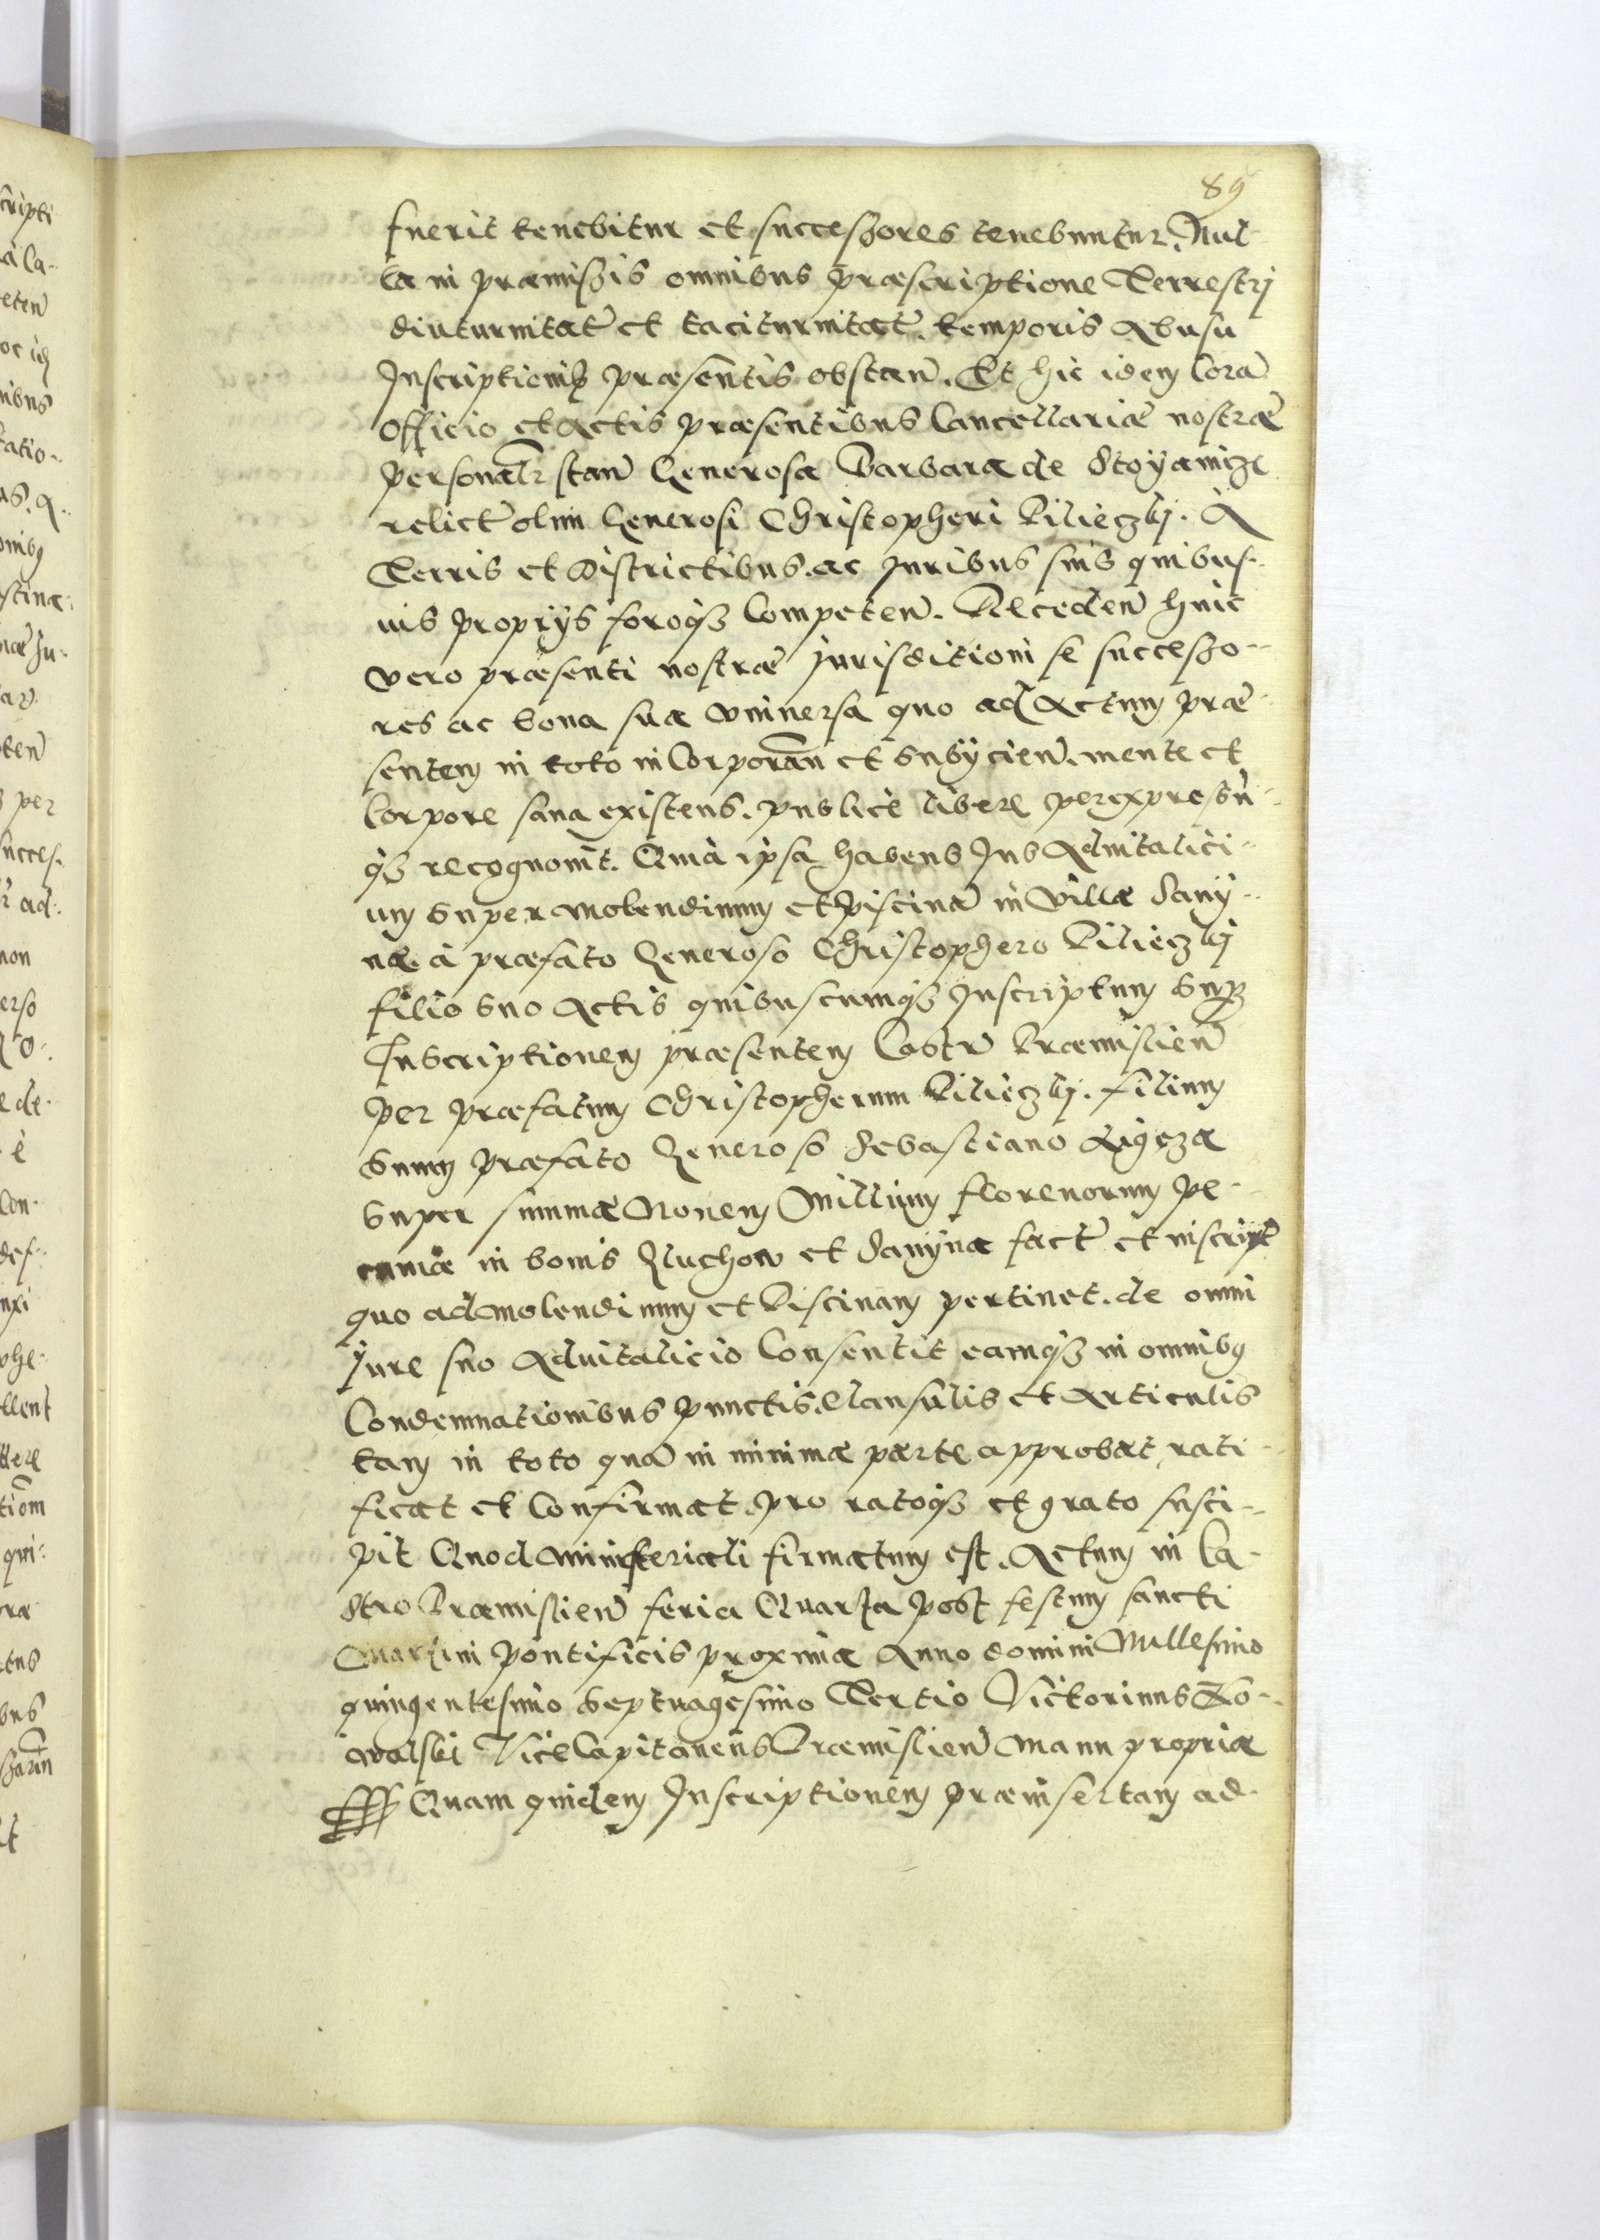 89
fuerit tenebitur et successores tenebuntur. Nul-
la in præmissis omnibus præscriptione Terrestrj
diuturnitat̃ et taciturnitat̃ temporis Abusu
Inscriptioniq̃ præsentis obstan̄. Et hic idem Corã
Officio et Actis præsentibus Cancellariæ nostræ
personal̃r stan̄ Generosa Barbara de Stoyanicze
relict̃ olim Generosi Christopheri Pilieczkj. A
Terris et Districtibus. ac Juribus suis quibus-
uis proprijs foroq₃ Competen̄. Receden̄ huic
vero præsenti nostræ jurisditioni se successo-
res ac bona sua vniuersa quo ad Actum præ-
sentem in toto inCorporan̄ et Subijcien̄. mente et
Corpore sana existens. publice libere per expressũ-
q₃ recognouit. Quia ipsa habens Jus Aduitalici-
um Super Molendinum et Piscinã in Villa Sany-
na. à præfato Generoso Christophero Pilieczkj
filio Suo Actis quibuscumq₃ Inscriptum Sup̱
Inscriptionem præsentem Castrẽ Præmislien̄
per præfatum Christopherum Pilieczkj. filium
Suum præfato Generoso Sebastiano Ligęza
Super summa Nouem Millium florenorum pe-
cuniæ in bonis Gluchow et Sanyna fact̃ et inscript̃
quo ad Molendinum et Piscinam pertinet. de omni
Jure suo Aduitalicio Consentit eamq₃ in omnibꝯ
Condemnationibus punctis. Clausulis et Articulis
tam in toto quã in minima parte approbat, rati-
ficat et Confirmat, pro ratoq₃ et grato susci-
pit Quod Ministeriali firmatum est. Actum in Ca-
stro Præmislien̄ feria Quarta post festum sancti
Martini pontificis proxima Anno domini Millesimo
quingentesimo Septuagesimo Tertio Victorinus Ko-
walski ViceCapitaneus Præmislien̄ Manu propria
Quam quidem Inscriptionem præinsertam ad-